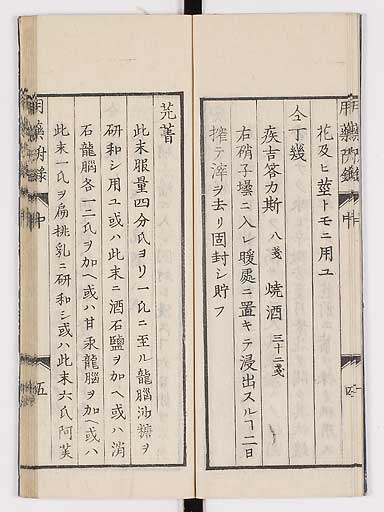 花及ヒ莖トモニ用ユ
仝丁幾
疾吉答力斯 八戔 焼酒 三十二戔
右硝子壜ニ入レ暖處ニ置キテ浸出スルヿ二日
搾テ滓ヲ去リ固封シ貯フ
芫菁
此末服量四分氏ヨリ一氏ニ至ル龍腦沙糖ヲ
研和シ用ユ或ハ此末ニ酒石鹽ヲ加ヘ或ハ消
石龍腦各一二氏ヲ加ヘ或ハ甘汞龍腦ヲ加ヘ或ハ
此末一氏ヲ扁桃乳ニ研和シ或ハ此末六氏阿芙
五